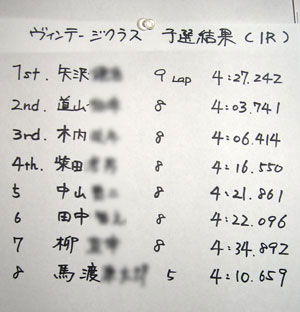 ヴィンテージクラス 予選結果(1R)
1st. 矢沢 9 Lap 4:27.242
2nd. 道山 8 4:03.741
3rd. 木内 8 4:06.414
4th. 柴田 8 4:16.550
5 中山 8 4:21.861
6 田中 8 4:22.096
7 柳 8 4:34.892
8 馬渡 5 4:10.659